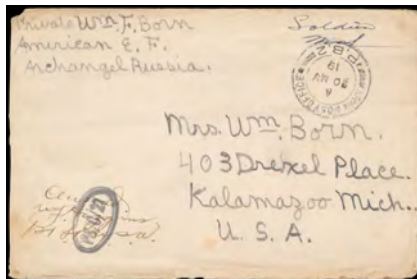 Private Wm. F. Born
American E. F.
Archangel Russia.
Soldiers
Mail
ARMY POST OFFICE
P.B.2
A
20 MY
19
Mrs. Wm. Born.
403 Drexel Place.
Kalamazoo Mich.
U. S. A.